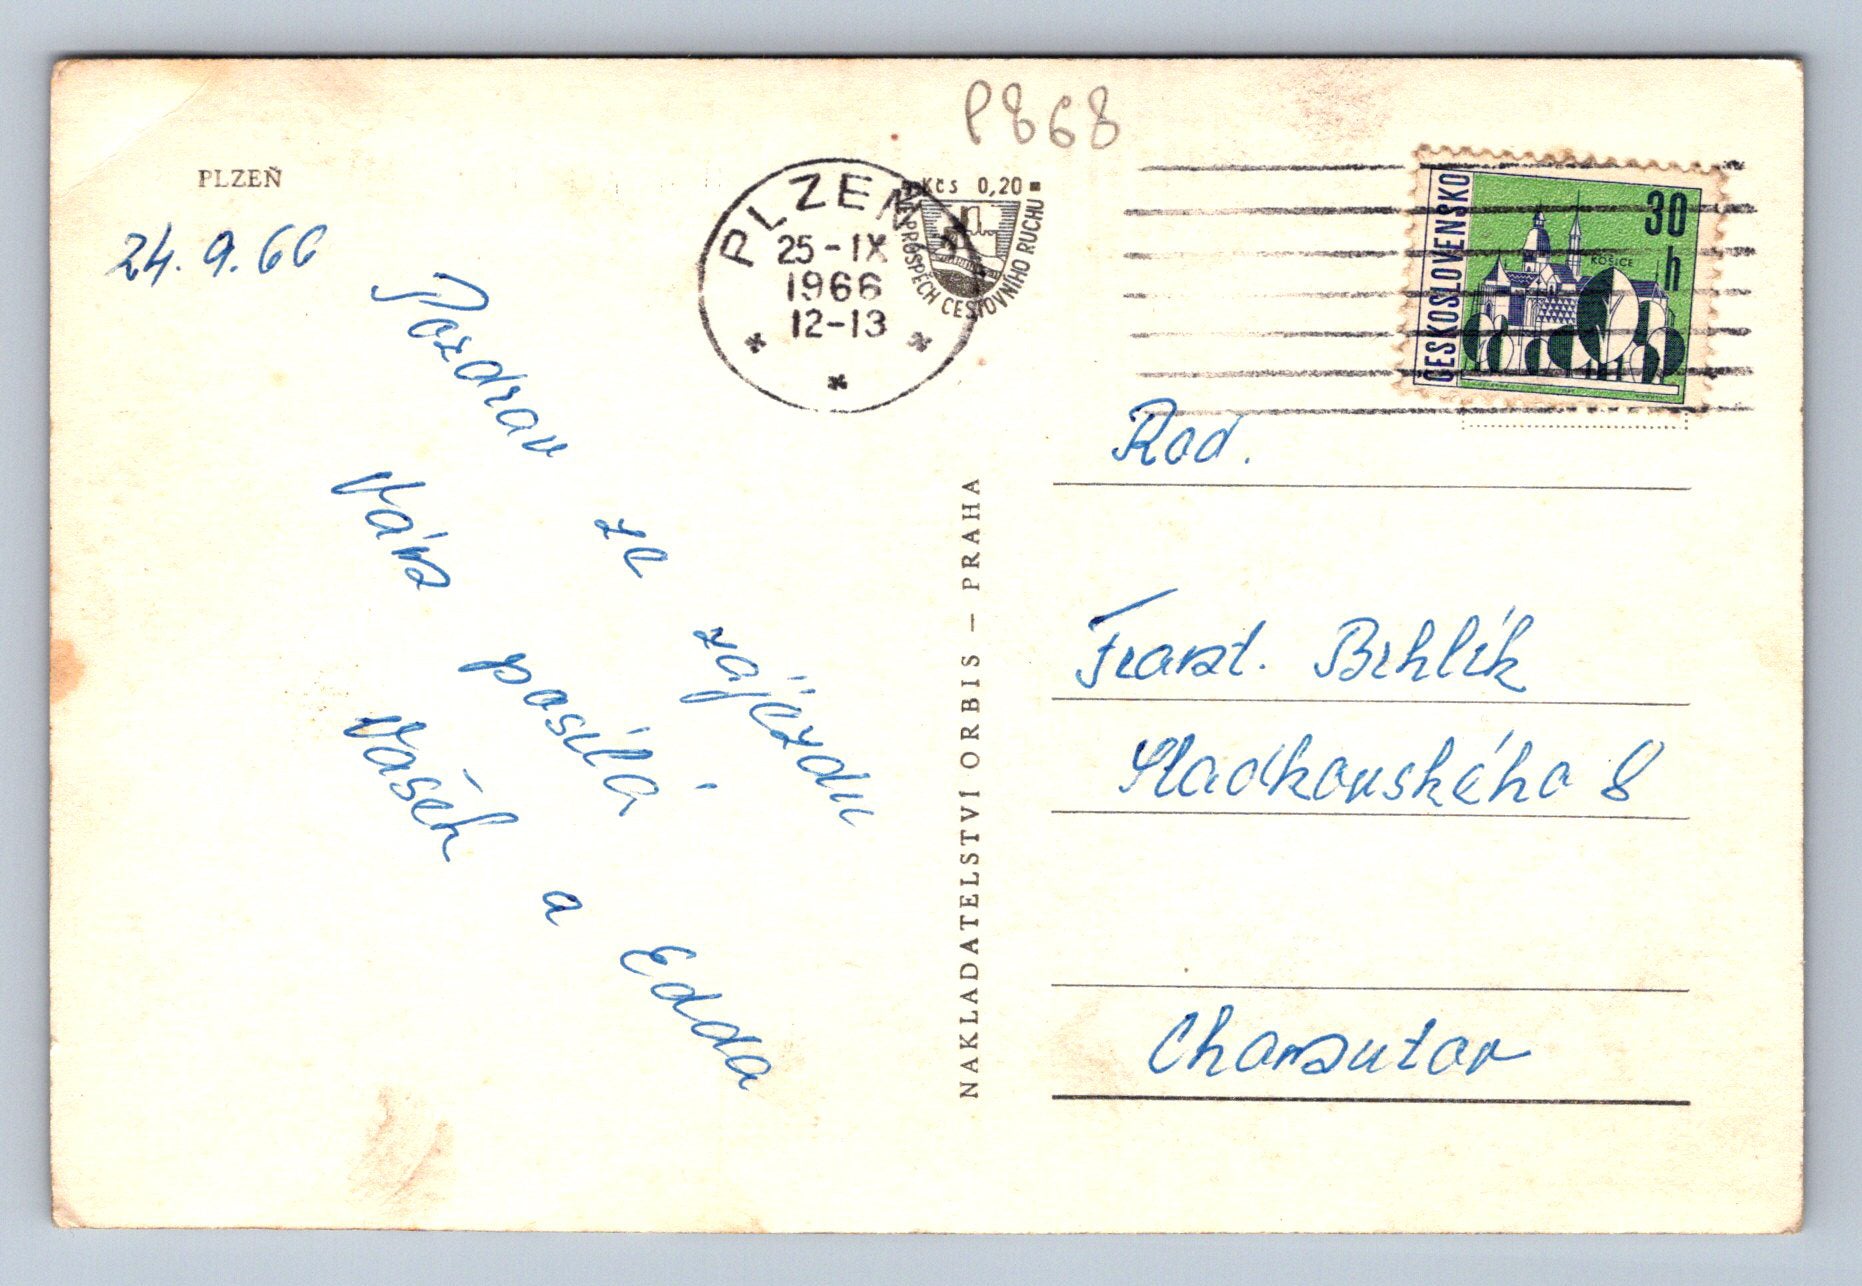 P868
PLZEŇ
24.9.66
Pozdrav ze zájezdu
Vám posílá
Vašek a Edda
PLZEŇ
25-IX
1966
12-13
Kčs 0,20
VE PROSPĚCH CESTOVNÍHO RUCHU
ČESKOSLOVENSKO
30
h
KOŠICE
NAKLADATELSTVÍ ORBIS – PRAHA
Rod.
Frant. Brhlík
Sladkovského 8
Chomutov